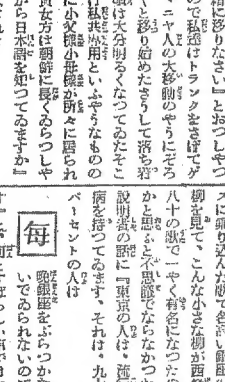 に移りなさい』とおつしやつ
ので私達はトランクをさげてゲ
マニヤ人の大移動のやうにぞろ
と移り始めたさうして落ち着
は大分明るくなつてゐたそこ
け私共所用といふやうなものの
に小父様小母様が所々に居られ
貴女方は朝鮮に長くゐらつしや
から日本語を知つてゐますか』
メに乗り込んだ歌で名高い銀座
柳を見て、こんな小さな柳が西
八十の歌で一やく有名になつた
かと思ふと不思議でならなかつ
説明者の話に『東京の人は、流行
病を持つてゐます、それは、九十
パーセントの人は
毎
晩銀座をぶらつか
いでゐられないの